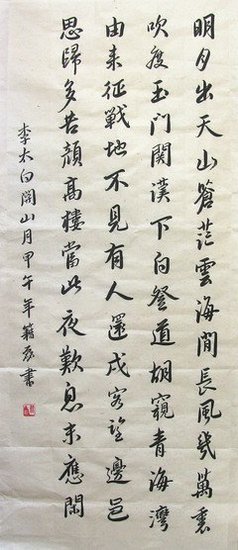 明月出天山蒼茫雲海間長風幾萬里
吹度玉門關漢下白登道胡窺青海灣
由來征戰地不見有人還戍客望邊邑
思歸多苦顏高樓當此夜歎息未應閑
李太白關山月甲午年籍友書